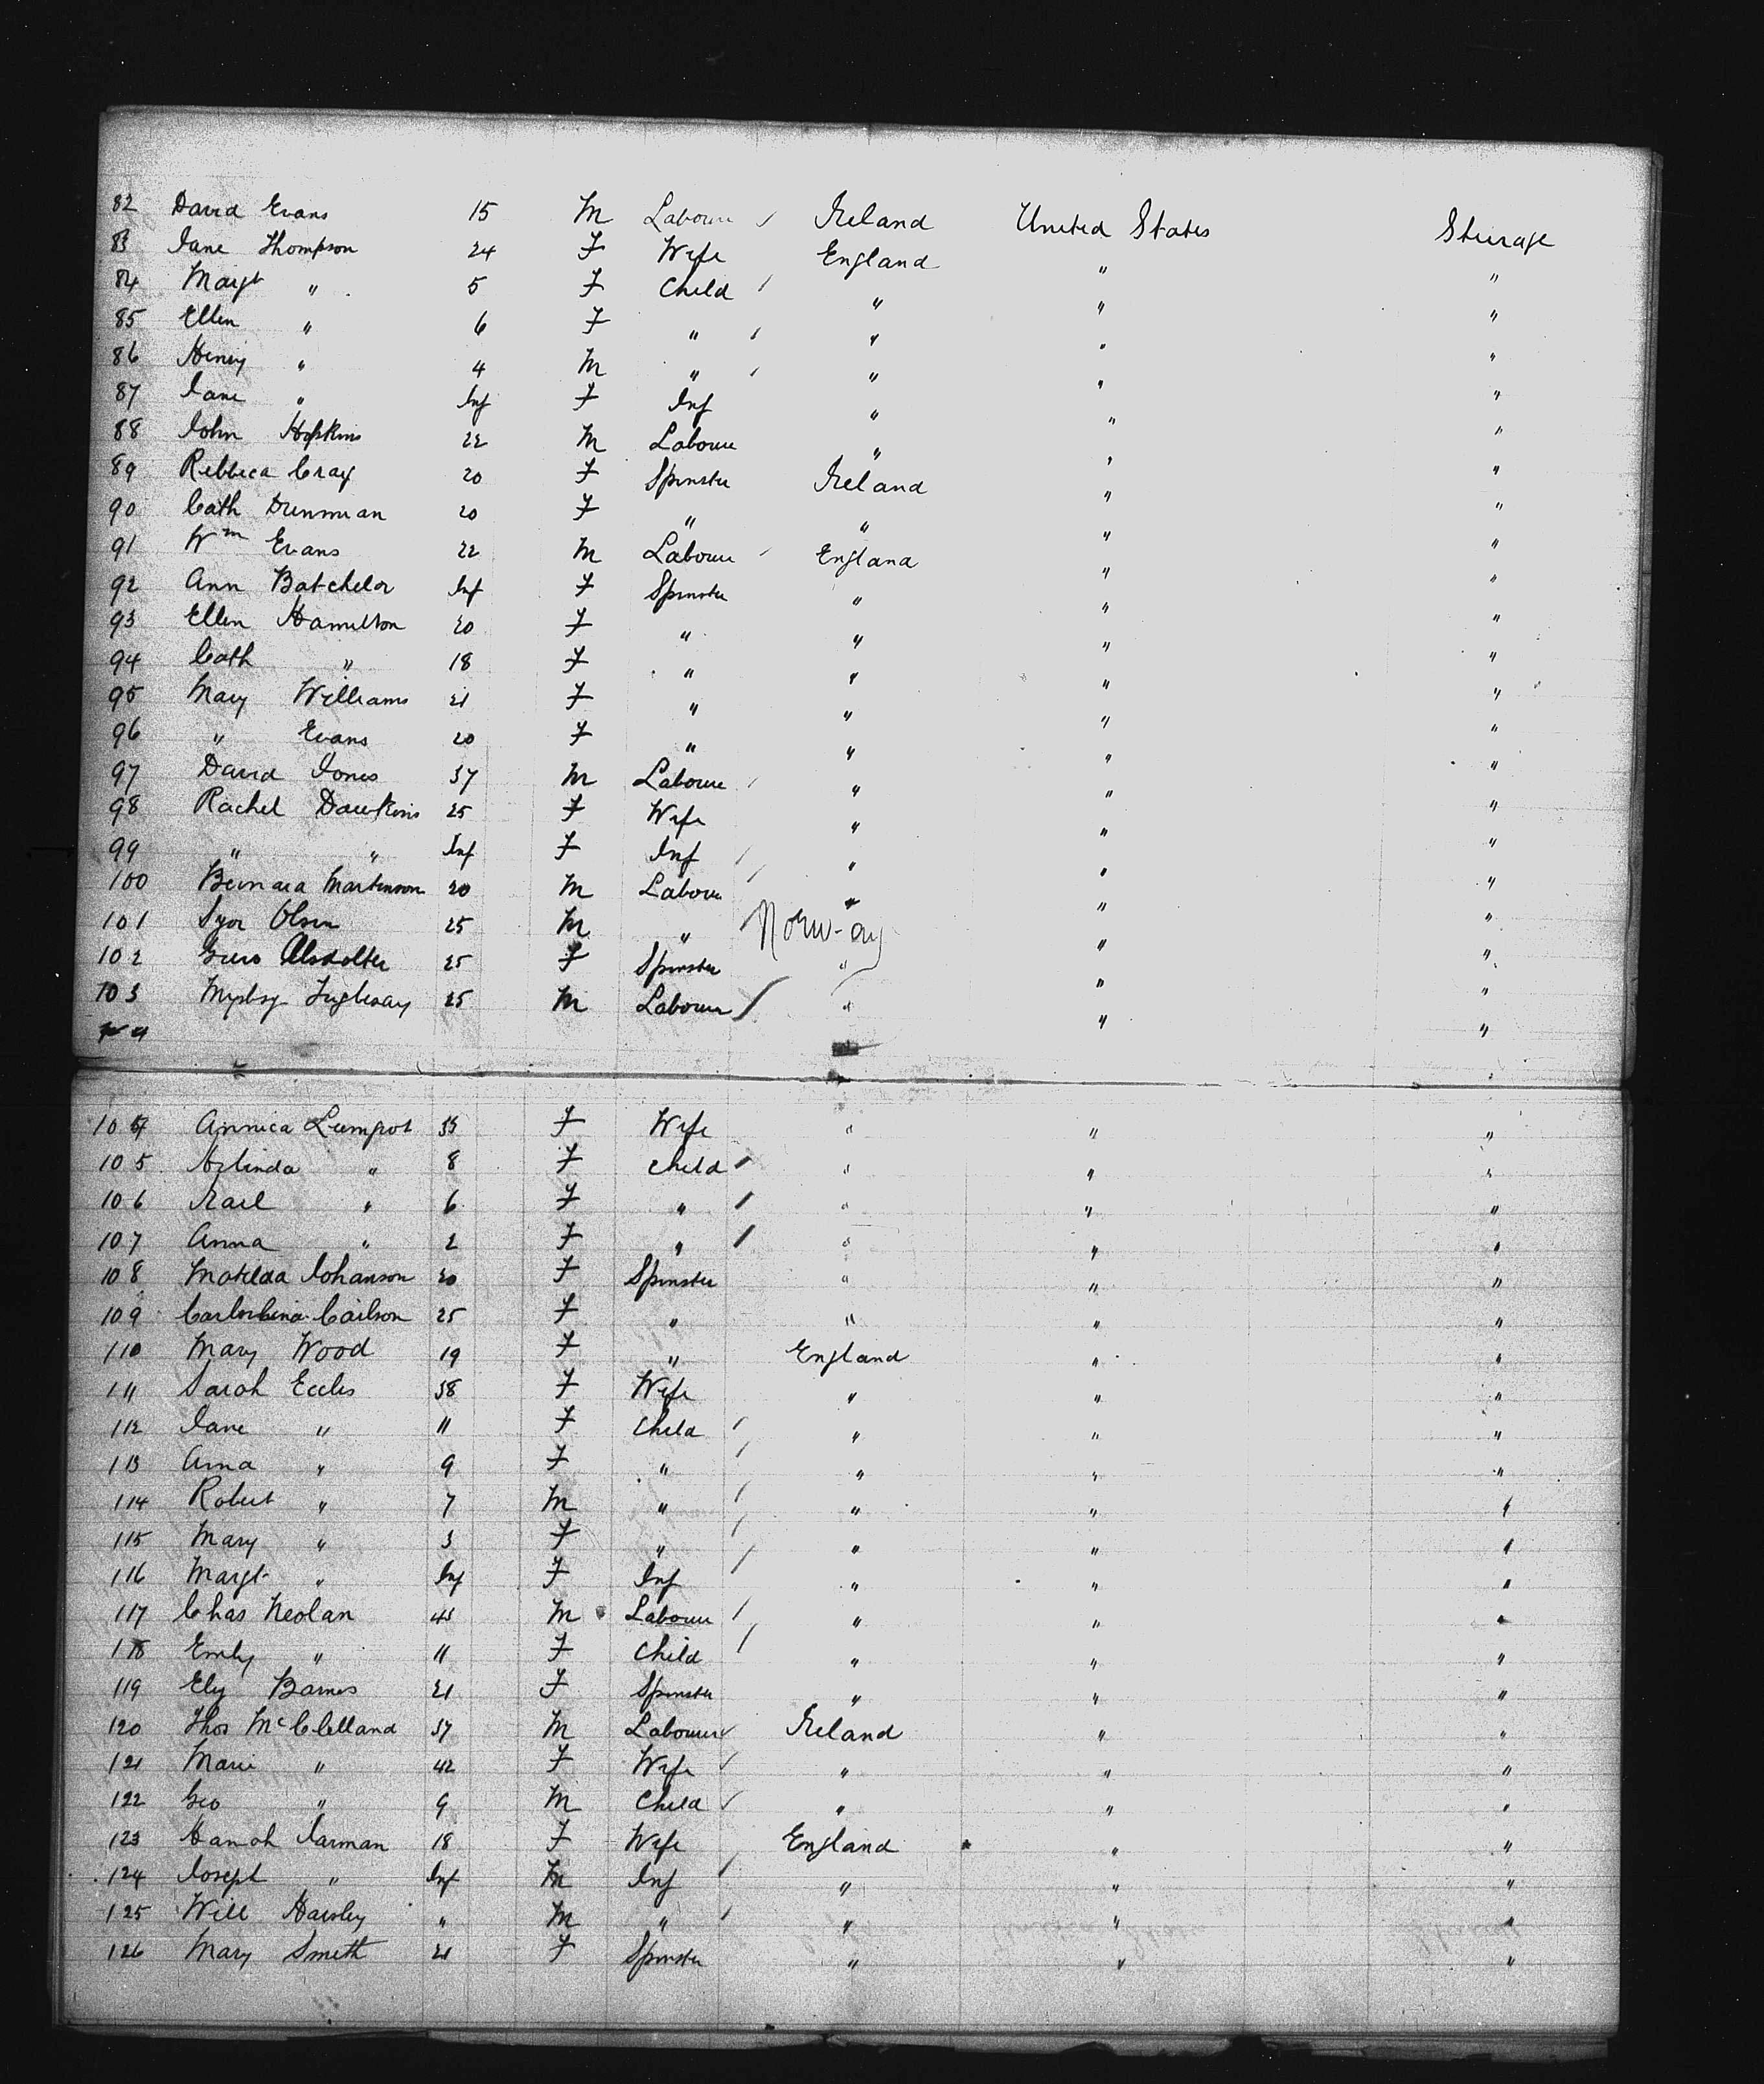 82 David Evans 15 M Labourer Ireland United States Steerage
83 Jane Thompson 24 F Wife England " "
84 Margt " 5 F Child " " "
85 Ellen " 6 F " " " "
86 Henry " 4 M " " " "
87 Jane " Inf F Inf " " "
88 John Hopkins 22 M Labourer " " "
89 Rebbeca Cray 20 F Spinster Ireland " "
90 Cath Drennan 20 F " " " "
91 Wm Evans 22 M Labourer England " "
92 Ann Batchelor Inf F Spinster " " "
93 Ellen Hamilton 20 F " " " "
94 Cath " 18 F " " " "
95 Mary Williams 21 F " " " "
96 " Evans 20 F " " " "
97 David Jones 37 M Labourer " " "
98 Rachel Dawkins 25 F Wife " " "
99 " " Inf F Inf " " "
100 Bernard Martinson 20 M Labour " " "
101 Olsen 25 M " Norway " "
102 25 F Spinster " " "
103 25 M Labourer " " "
" "
104 Annica Lumpot 33 F Wife " " "
105 Helinda " 8 F Child " " "
106 " 6 F " " " "
107 Anna " 2 F " " " "
108 Matilda Johanson 20 F Spinster " " "
109 Carlson 25 F " " " "
110 Mary Wood 19 F " England " "
111 Sarah Eccles 38 F Wife " " "
112 Jane " 11 F Child " " "
113 Anna " 9 F " " " "
114 Robert " 7 M " " " "
115 Mary " 3 F " " " "
116 Margt " Inf F Inf " " "
117 Chas Neolan 43 M Labourer " " "
118 Emily " 11 F Child " " "
119 Barnes 21 F Spinster " " "
120 Thos McClelland 37 M Labourer Ireland " "
121 Marie " 42 F Wife " " "
122 Geo " 9 M Child " " "
123 Hannah Jarman 18 F Wife England " "
124 Joseph " Inf M Inf " " "
125 Will " M " " " "
126 Mary Smith 21 F Spinster " " "